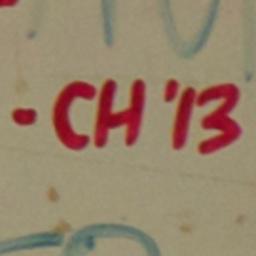 - CH '13